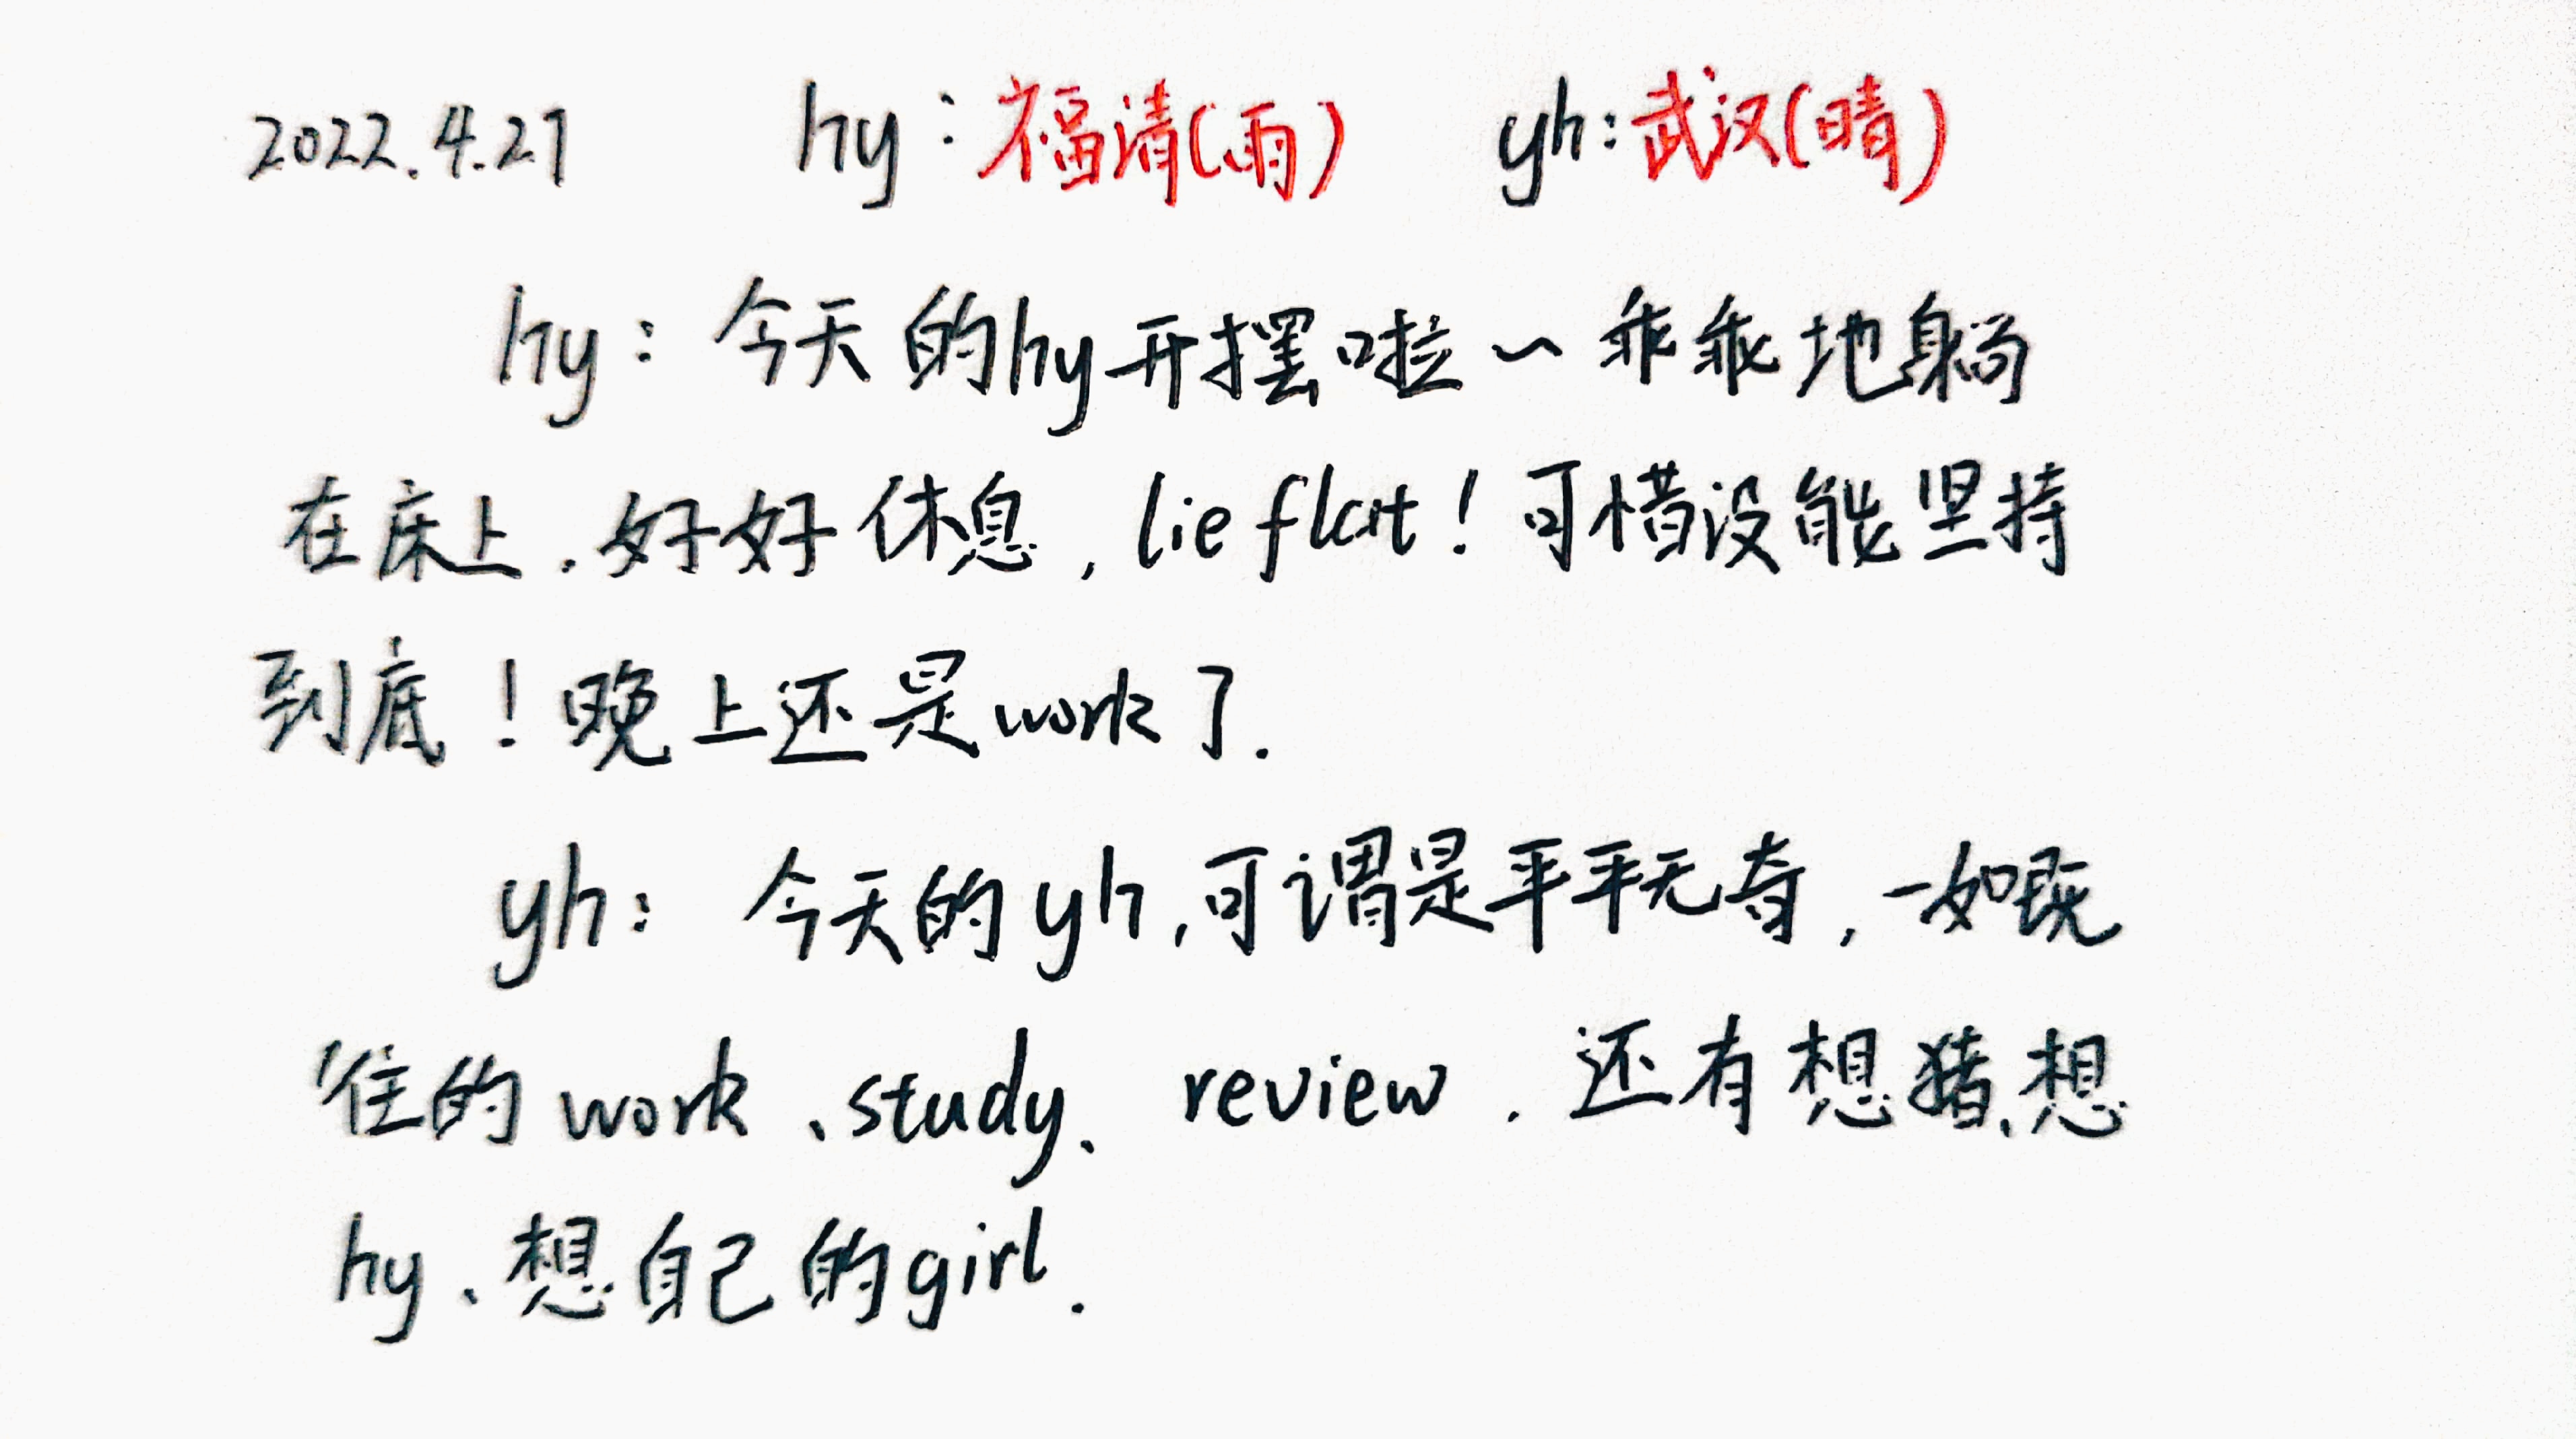 2022.4.27 hy：福清(雨) yh:武汉(晴)
hy：今天的hy开摆啦～乖乖地躺
在床上，好好休息，lie flat！可惜没能坚持
到底！晚上还是work了.
yh：今天的yh,可谓是平平无奇，一如既
往的work、study、review．还有想猪、想
hy、想自己的girl.